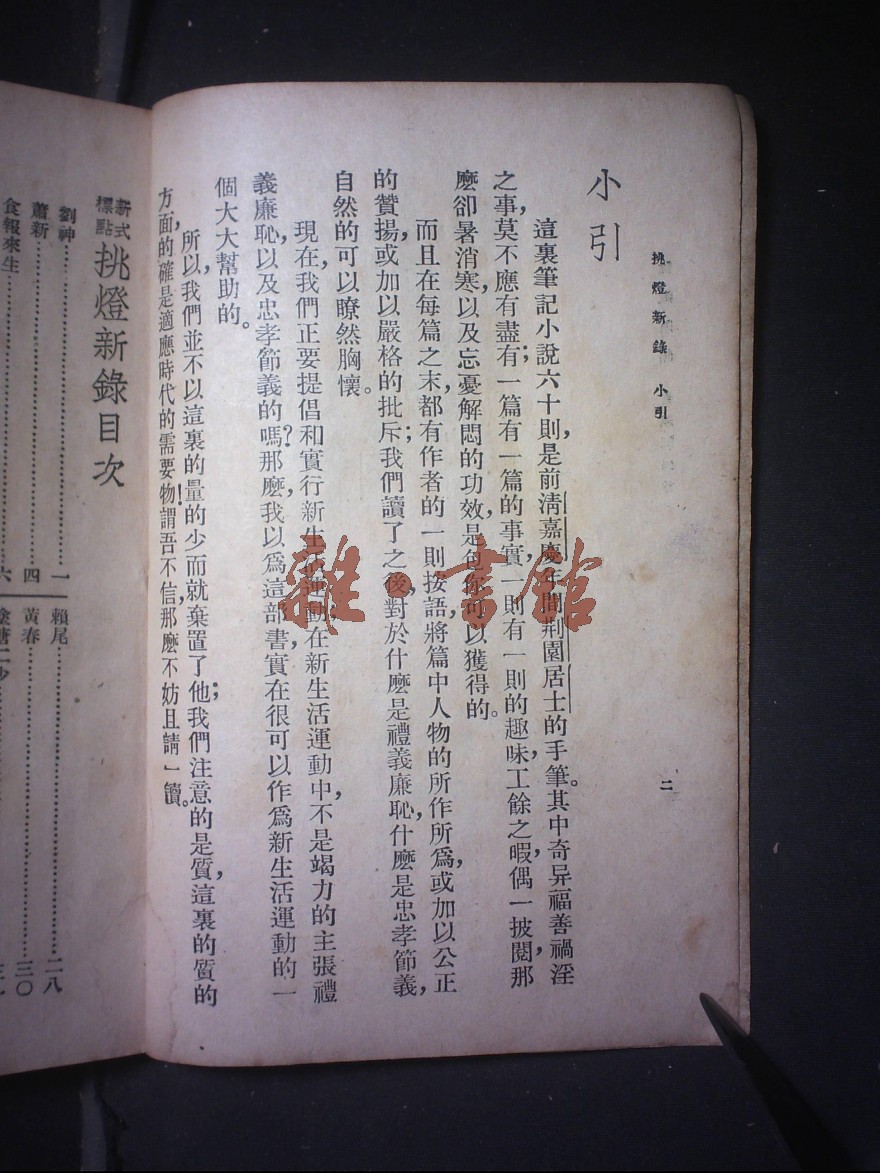 挑燈新錄 小引
二
小引
這裏筆記小說六十則，是前清嘉慶年間荆園居士的手筆。其中奇异福善禍淫
之事，莫不應有盡有；一篇有一篇的事實，一則有一則的趣味，工餘之暇，偶一披閱，那
麽卻暑消寒，以及忘憂解悶的功效，是包你可以獲得的。
而且在每篇之末，都有作者的一則按語，將篇中人物的所作所爲，或加以公正
的贊揚，或加以嚴格的批斥；我們讀了之後，對於什麽是禮義廉恥，什麽是忠孝節義，
自然的可以瞭然胸懷。
現在，我們正要提倡和實行新生活運動；在新生活運動中，不是竭力的主張禮
義廉恥，以及忠孝節義的嗎？那麽，我以爲這部書，實在很可以作爲新生活運動的一
個大大幫助的。
所以，我們並不以這裏的量的少而就棄置了他；我們注意的是質，這裏的質的
方面，的確是適應時代的需要物！謂吾不信，那麽不妨且請一讀。
新式標點 挑燈新錄目次
劉神……一
蕭新……四
食報來生……六
賴尾……二八
黃春……三〇
雜·書館